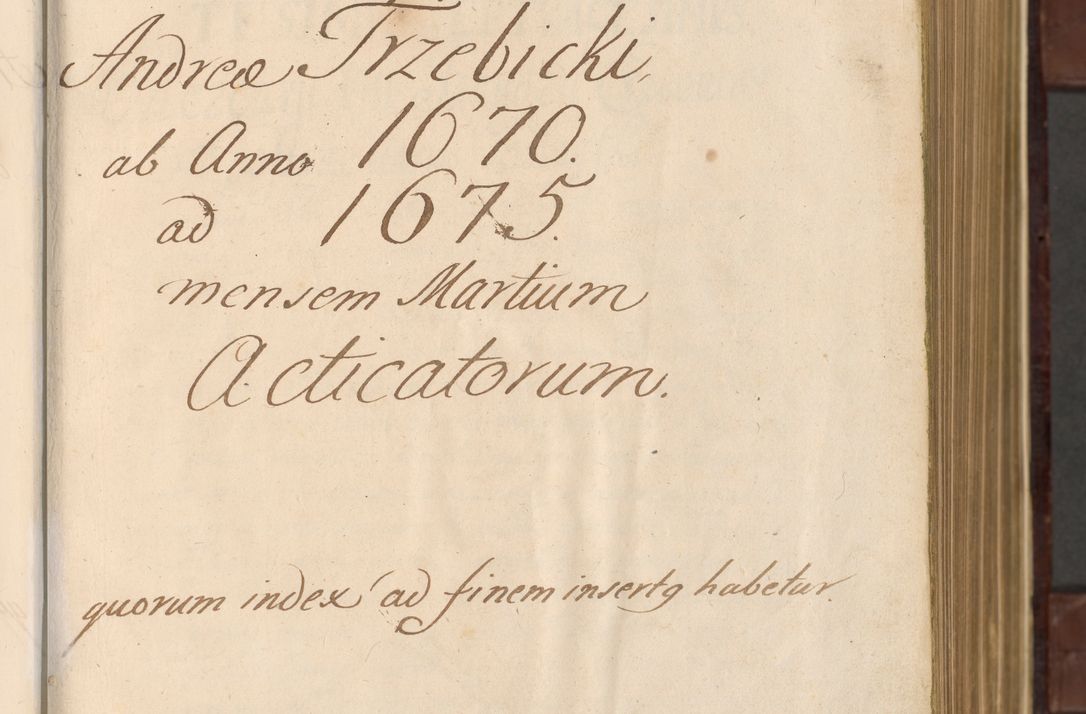 Andreæ Trzebicki,
ab Anno 1670.
ad 1675.
mensem Martium
Acticatorum.
quorum index ad finem insertq habetur.